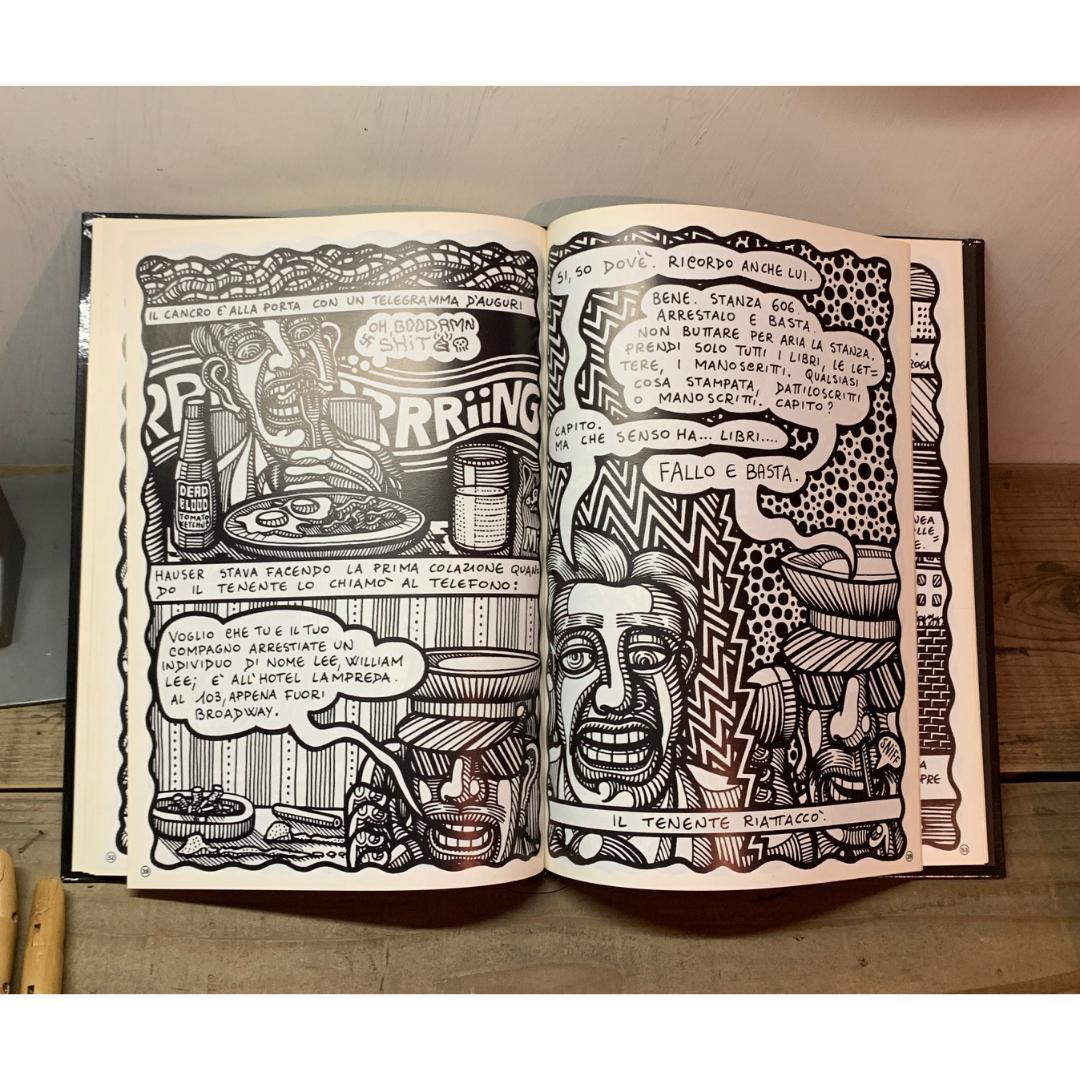 IL CANCRO E' ALLA PORTA CON UN TELEGRAMMA D'AUGURI
OH, GODDAMN
SHIT
RRRiiNG
DEAD
BLOOD
TOMATO
KETCHUP
HAUSER STAVA FACENDO LA PRIMA COLAZIONE QUAN=
DO IL TENENTE LO CHIAMO` AL TELEFONO:
VOGLIO CHE TU E IL TUO
COMPAGNO ARRESTIATE UN
INDIVIDUO DI NOME LEE, WILLIAM
LEE; E' ALL'HOTEL LAMPREDA.
AL 103, APPENA FUORI
BROADWAY.
32
38
SI, SO DOV'È. RICORDO ANCHE LUI.
BENE. STANZA 606.
ARRESTALO E BASTA.
NON BUTTARE PER ARIA LA STANZA.
PRENDI SOLO TUTTI I LIBRI, LE LET=
TERE, I MANOSCRITTI. QUALSIASI
COSA STAMPATA, DATTILOSCRITTI
O MANOSCRITTI. CAPITO?
CAPITO.
MA CHE SENSO HA... LIBRI....
FALLO E BASTA.
SNIFF
IL TENENTE RIATTACCO`.
39
53